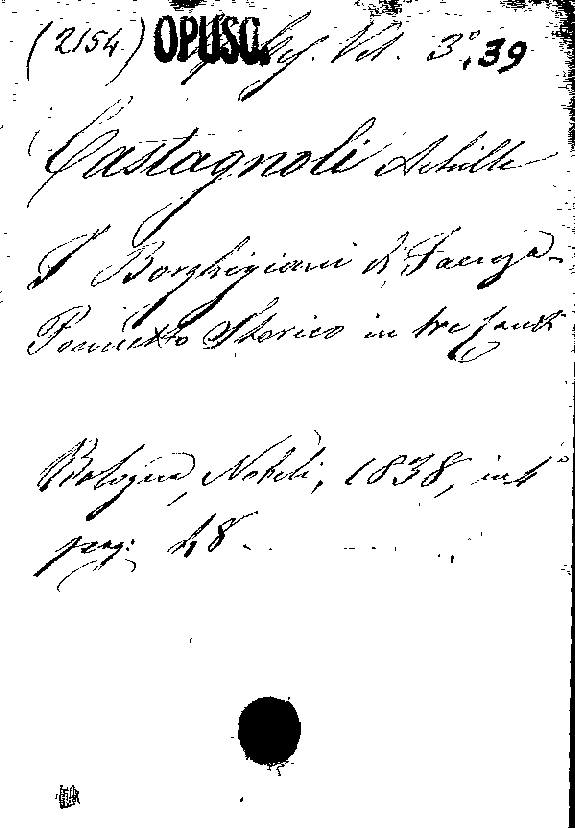 (2154) OPUSC. Vet. 3º. 39
Castagnoli Achille
I Borghigiani di Faenza-
Poemetto Storico in tre Canti
Bologna, Nobili, 1838, in 4º
pag: 48